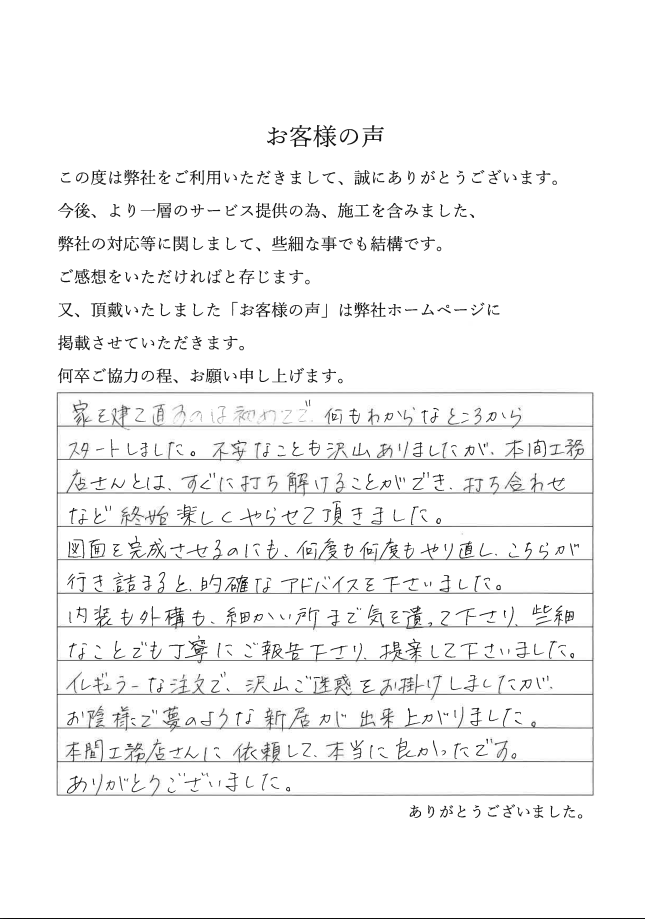 お客様の声
この度は弊社をご利用いただきまして、誠にありがとうございます。
今後、より一層のサービス提供の為、施工を含みました、
弊社の対応等に関しまして、些細な事でも結構です。
ご感想をいただければと存じます。
又、頂戴いたしました「お客様の声」は弊社ホームページに
掲載させていただきます。
何卒ご協力の程、お願い申し上げます。
家を建て直すのは初めてで、何もわからなところから
スタートしました。不安なことも沢山ありましたが、本間工務
店さんとは、すぐに打ち解けることができ、打ち合わせ
など終始楽しくやらせて頂きました。
図面を完成させるのにも、何度も何度もやり直し、こちらが
行き詰まると、的確なアドバイスを下さいました。
内装も外構も、細かい所まで気を遣って下さり、些細
なことでも丁寧にご報告下さり、提案して下さいました。
イレギュラーな注文で、沢山ご迷惑をお掛けしましたが、
お陰様で夢のような新居が出来上がりました。
本間工務店さんに依頼して、本当に良かったです。
ありがとうございました。
ありがとうございました。